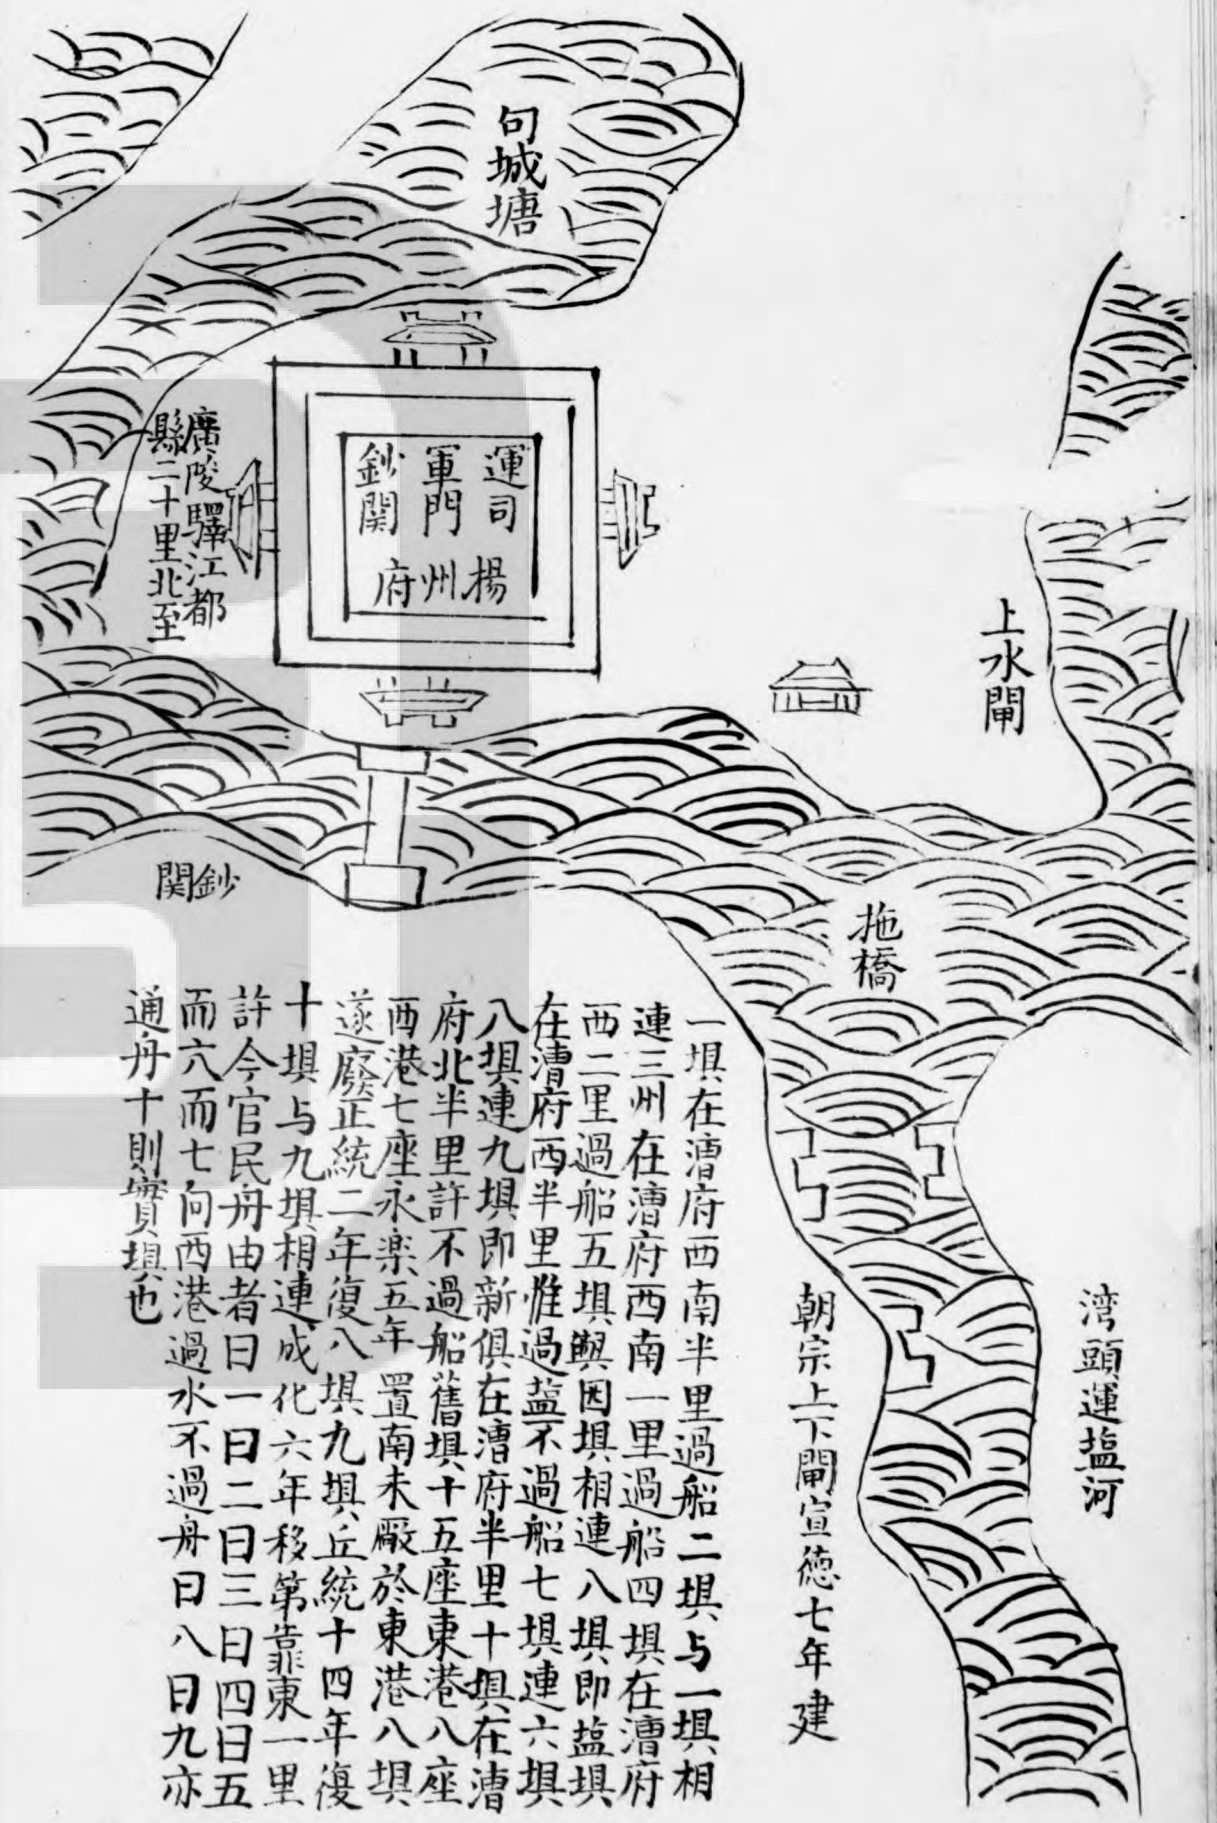 句城塘
運司
軍門
鈔関
揚州府
廣陵驛江都
縣二十里北至
上水閘
鈔関
拖橋
湾頭運塩河
朝宗上下閘宣徳七年建
一垻在漕府西南半里過船二垻与一垻相
連三州在漕府西南一里過船四垻在漕府
西二里過船五垻與因垻相連八垻即塩垻
在漕府西半里惟過塩不過船七垻連六垻
八垻連九垻即新俱在漕府半里十垻在漕
府北半里許不過船舊垻十五座東港八座
西港七座永楽五年置南未厰於東港八垻
遂廢正統二年復八垻九垻丘統十四年復
十垻与九垻相連成化六年移第靠東一里
許今官民舟由者曰一曰二曰三曰四曰五
而六而七向西港過水不過舟曰八曰九亦
通舟十則實垻也